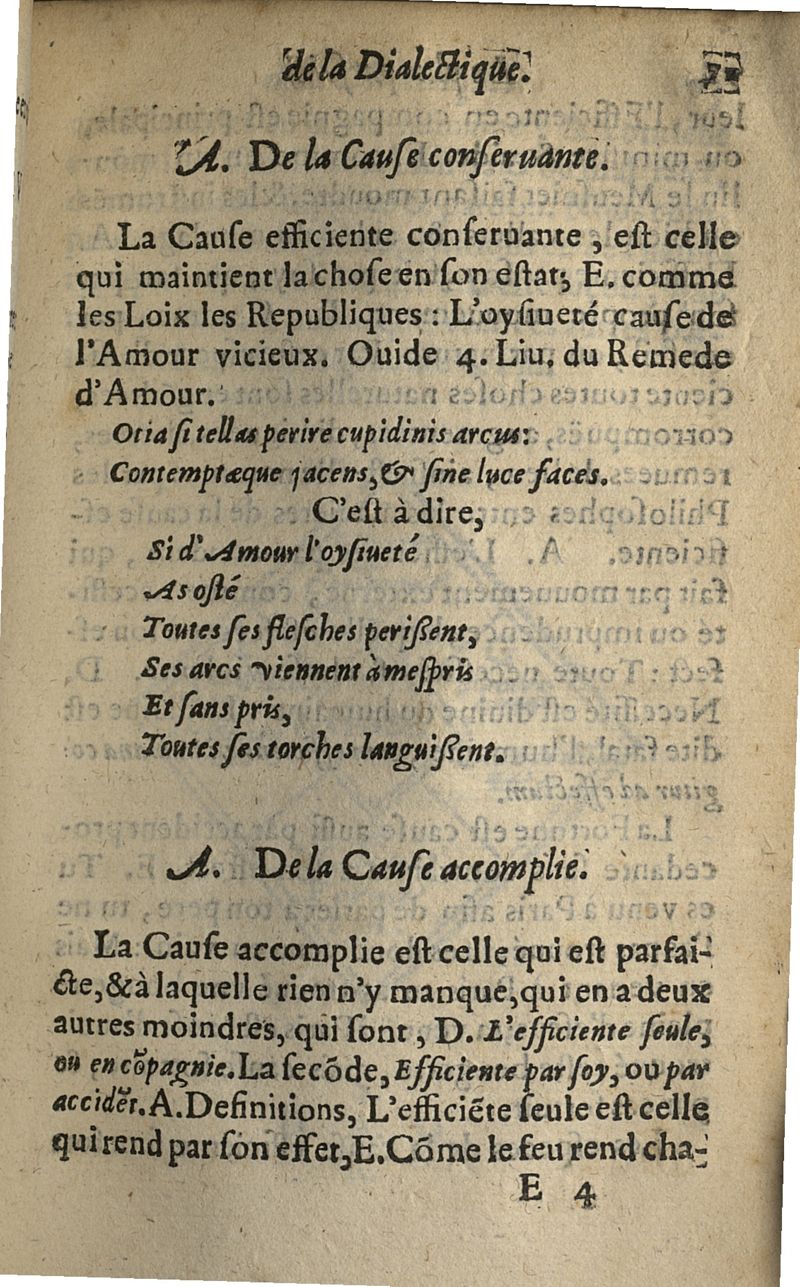 de la Dialectique.
A. De la Cauſe conſeruante.
La Cauſe efficiente conſeruante, eſt celle
qui maintient la choſe en ſon eſtat, E. comme
les Loix les Republiques : L'oyſiueté cauſe de
l'Amour vicieux. Ouide 4. Liu. du Remede
d'Amour.
Otia ſi tellas perire cupidinis arcus:
Contemptæque jacens, & ſine luce faces.
C'eſt à dire,
Si d'Amour l'oyſiueté
As oſté
Toutes ſes fleſches perißent,
Ses arcs viennent à meſpris
Et ſans pris,
Toutes ſes torches languißent.
A. De la Cauſe accomplie.
La Cauſe accomplie eſt celle qui eſt parfai-
cte, & à laquelle rien n'y manque, qui en a deux
autres moindres, qui ſont, D. L'efficiente ſeule,
ou en cõpagnie. La ſecõde, Efficiente par ſoy, ou par
accidẽt. A. Definitions, L'efficiẽte ſeule eſt celle
qui rend par ſon effet, E. Cõme le feu rend cha-
E 4